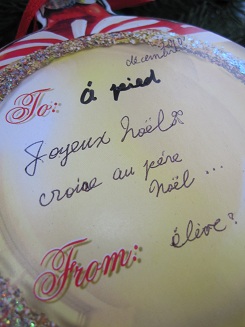 décembre
To:
À pied
Joyeux Noël
croise au père
Noël ...
élève?
From: